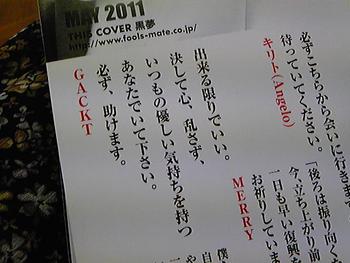 MAY 2011
THIS COVER 黒夢
http://www.tools-mate.co.jp/
必ずこちらから会いに行きます
待っていてください。
キリト(Angelo)
「後ろは振り向くな
今、立ち上がり前
一日も早い復興を
お祈りしています
MERRY
出来る限りでいい。
決して心、乱さず、
いつもの優しい気持ちを持つ
あなたでいて下さい。
必ず、助けます。
GACKT